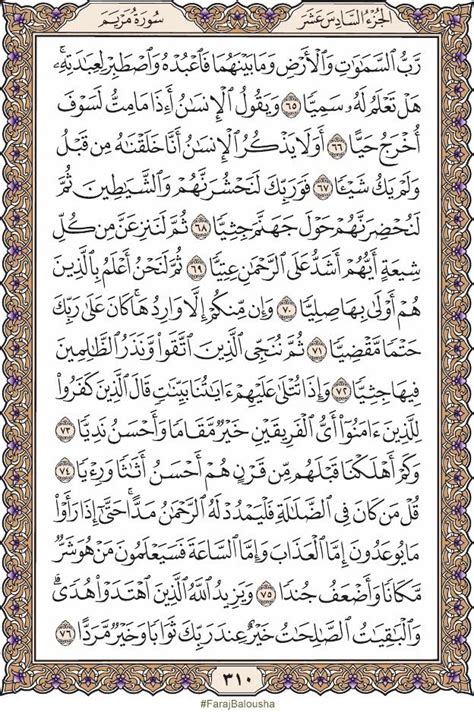 الجزء السادس عشر
سورة مريم
رَّبُّ ٱلسَّمَٰوَٰتِ وَٱلْأَرْضِ وَمَا بَيْنَهُمَا فَٱعْبُدْهُ وَٱصْطَبِرْ لِعِبَٰدَتِهِۦۚ
هَلْ تَعْلَمُ لَهُۥ سَمِيًّا ٦٥ وَيَقُولُ ٱلْإِنسَٰنُ أَءِذَا مَا مِتُّ لَسَوْفَ
أُخْرَجُ حَيًّا ٦٦ أَوَلَا يَذْكُرُ ٱلْإِنسَٰنُ أَنَّا خَلَقْنَٰهُ مِن قَبْلُ
وَلَمْ يَكُ شَيْـًٔا ٦٧ فَوَرَبِّكَ لَنَحْشُرَنَّهُمْ وَٱلشَّيَٰطِينَ ثُمَّ
لَنُحْضِرَنَّهُمْ حَوْلَ جَهَنَّمَ جِثِيًّا ٦٨ ثُمَّ لَنَنزِعَنَّ مِن كُلِّ
شِيعَةٍ أَيُّهُمْ أَشَدُّ عَلَى ٱلرَّحْمَٰنِ عِتِيًّا ٦٩ ثُمَّ لَنَحْنُ أَعْلَمُ بِٱلَّذِينَ
هُمْ أَوْلَىٰ بِهَا صِلِيًّا ٧٠ وَإِن مِّنكُمْ إِلَّا وَارِدُهَاۚ كَانَ عَلَىٰ رَبِّكَ
حَتْمًا مَّقْضِيًّا ٧١ ثُمَّ نُنَجِّى ٱلَّذِينَ ٱتَّقَوا۟ وَّنَذَرُ ٱلظَّٰلِمِينَ
فِيهَا جِثِيًّا ٧٢ وَإِذَا تُتْلَىٰ عَلَيْهِمْ ءَايَٰتُنَا بَيِّنَٰتٍ قَالَ ٱلَّذِينَ كَفَرُوا۟
لِلَّذِينَ ءَامَنُوٓا۟ أَىُّ ٱلْفَرِيقَيْنِ خَيْرٌ مَّقَامًا وَأَحْسَنُ نَدِيًّا ٧٣
وَكَمْ أَهْلَكْنَا قَبْلَهُم مِّن قَرْنٍ هُمْ أَحْسَنُ أَثَٰثًا وَرِءْيًا ٧٤
قُلْ مَن كَانَ فِى ٱلضَّلَٰلَةِ فَلْيَمْدُدْ لَهُ ٱلرَّحْمَٰنُ مَدًّاۚ حَتَّىٰٓ إِذَا رَأَوْا۟
مَا يُوعَدُونَ إِمَّا ٱلْعَذَابَ وَإِمَّا ٱلسَّاعَةَ فَسَيَعْلَمُونَ مَنْ هُوَ شَرٌّ
مَّكَانًا وَأَضْعَفُ جُندًا ٧٥ وَيَزِيدُ ٱللَّهُ ٱلَّذِينَ ٱهْتَدَوْا۟ هُدًىۗ
وَٱلْبَٰقِيَٰتُ ٱلصَّٰلِحَٰتُ خَيْرٌ عِندَ رَبِّكَ ثَوَابًا وَخَيْرٌ مَّرَدًّا ٧٦
٣١٠
#FarajBalousha